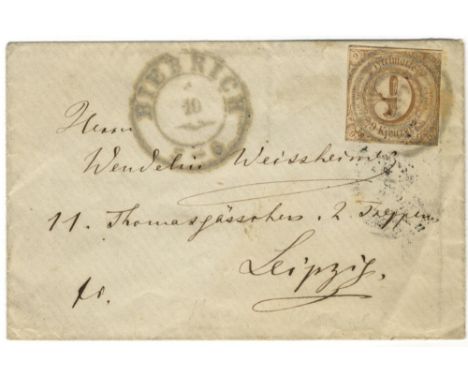 BIEBRICH
10
Freimarke
9
Kreuzer
Herrn
Wendelin Weissheimer
11. Thomasgässchen. 2 Treppen
Leipzig.
fr.